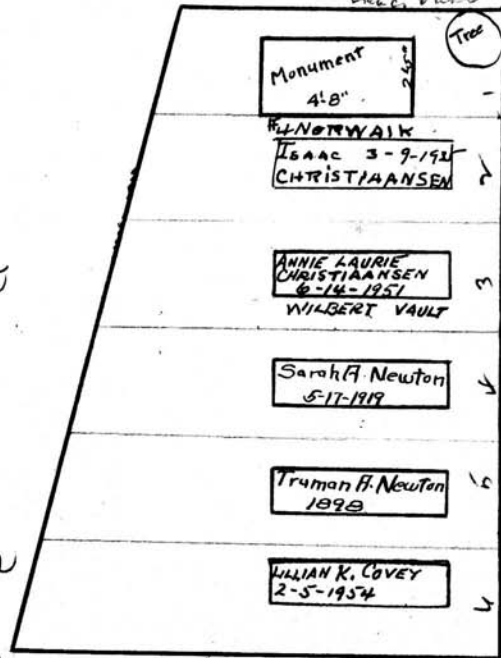 Tree
Monument
4'8"
1
#4 NORWALK
ISAAC 3-9-19
CHRISTIAANSEN
2
ANNIE LAURIE
CHRISTIAANSEN
6-14-1951
WILBERT VAULT
3
Sarah A. Newton
5-17-1919
4
Truman A. Newton
1898
5
LILLIAN K. COVEY
2-5-1954